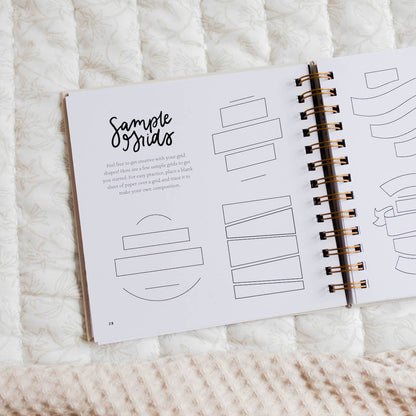 Sample
Grids
Feel free to get creative with your grid
shapes! Here are a few sample grids to get
you started. For easy practice, place a blank
sheet of paper over a grid and trace it to
make your own composition.